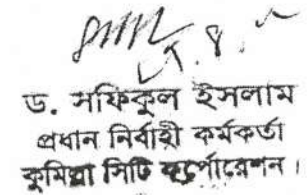 ড. সফিকুল ইসলাম
প্রধান নির্বাহী কর্মকর্তা
কুমিল্লা সিটি কর্পোরেশন।